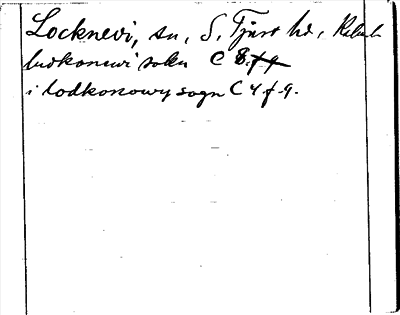 Locknevi, sn, S. Tjust hd,
ludkonuwi sokn C 8. f. 9
i lodkonowy sogn C 4 f. 9.